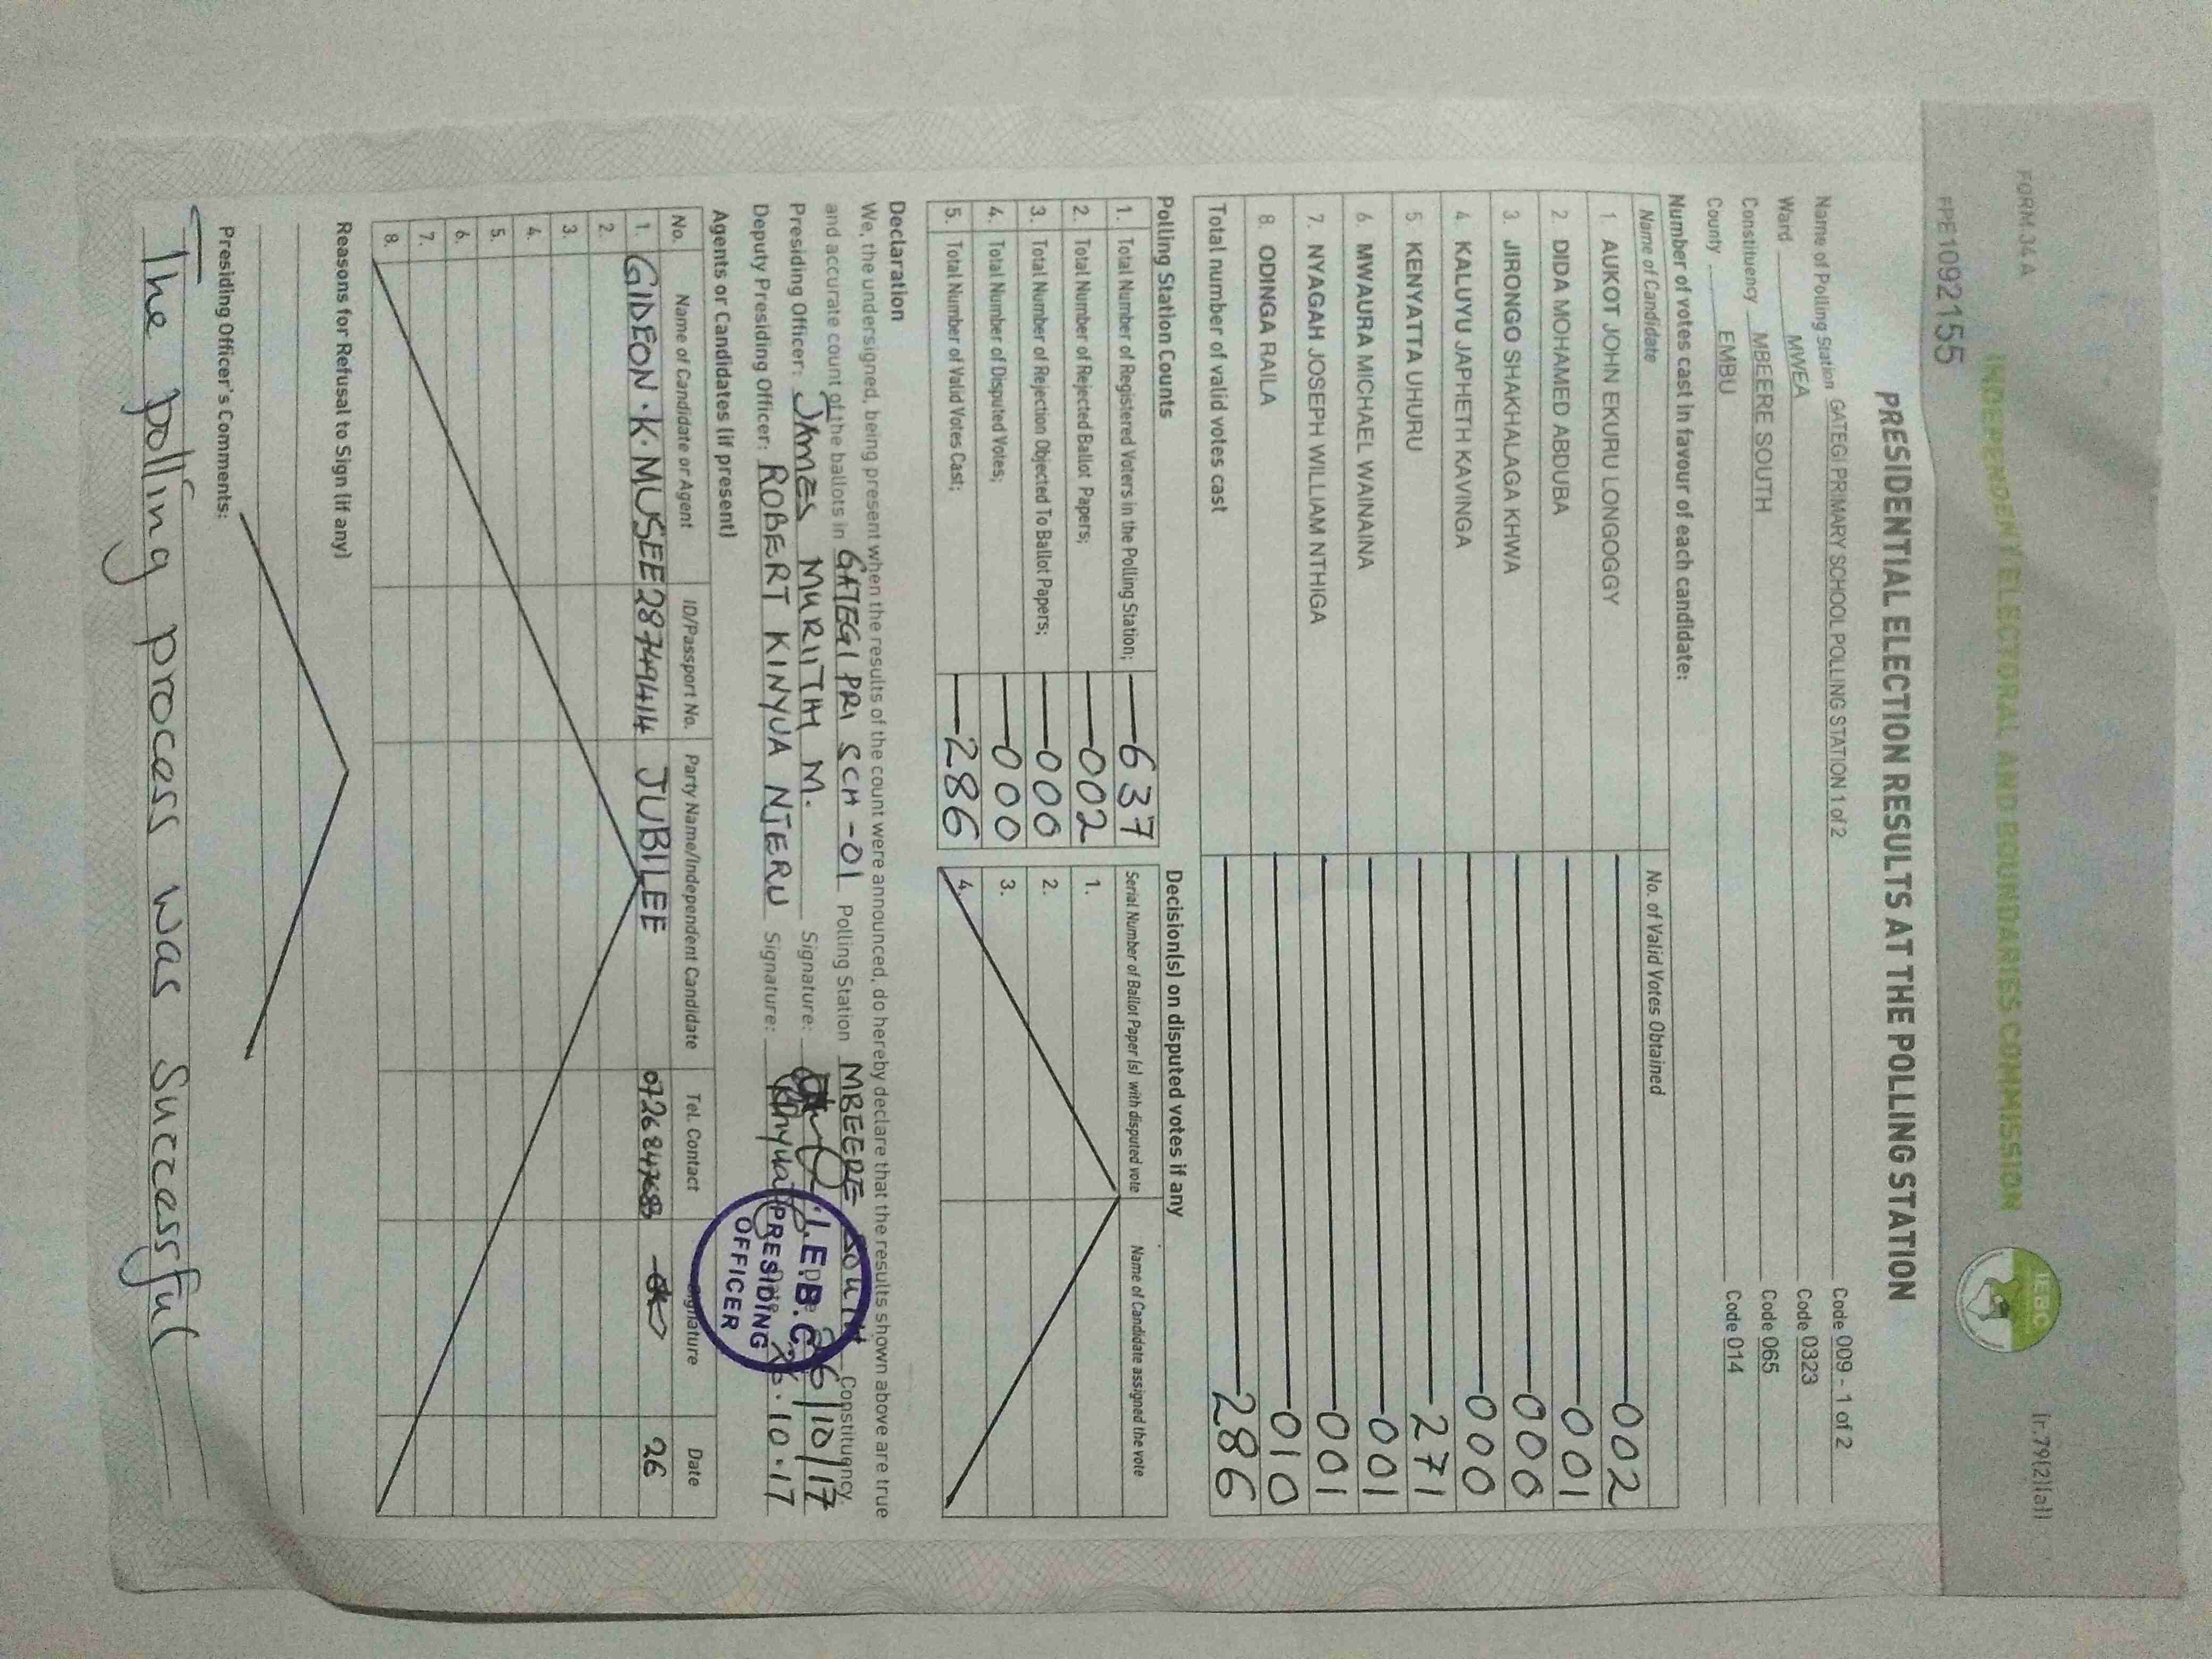 FORM 34 A
[r.79(2)(a)]
INDEPENDENT ELECTORAL AND BOUNDARIES COMMISSION
IEBC
FPE1092155
PRESIDENTIAL ELECTION RESULTS AT THE POLLING STATION
Name of Polling Station GATEGI PRIMARY SCHOOL POLLING STATION 1 of 2 Code 009 - 1 of 2
Ward MWEA Code 0323
Constituency MBEERE SOUTH Code 065
County EMBU Code 014
Number of votes cast in favour of each candidate:
Name of Candidate No. of Valid Votes Obtained
1. AUKOT JOHN EKURU LONGOGGY 002
2. DIDA MOHAMED ABDUBA 001
3. JIRONGO SHAKHALAGA KHWA 000
4. KALUYU JAPHETH KAVINGA 000
5 KENYATTA UHURU 271
6. MWAURA MICHAEL WAINAINA 001
7. NYAGAH JOSEPH WILLIAM NTHIGA 001
8. ODINGA RAILA 010
Total number of valid votes cast 286
Polling Station Counts
1. Total Number of Registered Voters in the Polling Station; 637
2. Total Number of Rejected Ballot Papers; 002
3. Total Number of Rejection Objected To Ballot Papers; 000
4. Total Number of Disputed Votes; 000
5. Total Number of Valid Votes Cast; 286
Decision(s) on disputed votes if any
Serial Number of Ballot Paper (s) with disputed vote Name of Candidate assigned the vote
1.
2.
3.
4.
Declaration
We, the undersigned, being present when the results of the count were announced, do hereby declare that the results shown above are true
and accurate count of the ballots in GATEGI PRI SCH -01 Polling Station MBEERE South Constituency.
Presiding Officer: JAMES MURIITHI M. Signature: 26/10/17
Deputy Presiding Officer: ROBERT KINYUA NJERU Signature: Kinyua 26.10.17
I.E.B.C.
PRESIDING
OFFICER
Agents or Candidates (if present)
No. Name of Candidate or Agent ID/Passport No. Party Name/Independent Candidate Tel. Contact Signature Date
1. GIDEON.K.MUSEE 28749414 JUBILEE 26
2.
3.
4.
5.
6.
7.
8.
Reasons for Refusal to Sign (if any)
Presiding Officer's Comments:
The polling process was successful